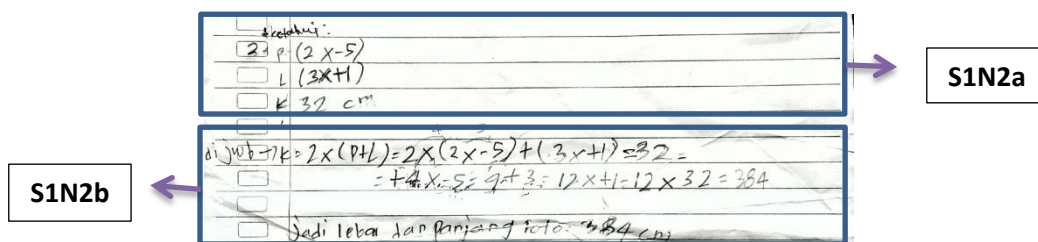 diketahui:
2. P (2x-5)
L (3x+1)
K 32 cm
S1N2a
dijwb → K = 2x(P+L) = 2x(2x-5)+(3x+1) = 32 =
= +4x-5= 9+3= 12x+1=12x32=384
S1N2b
jadi lebar dan panjang foto: 384 cm